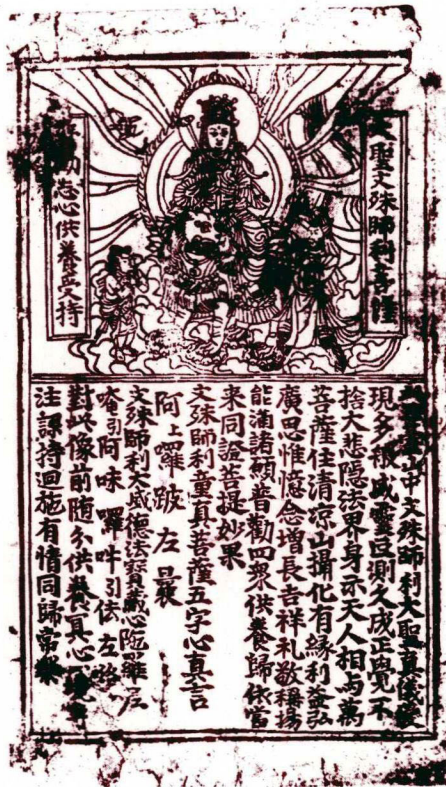 大聖文殊師利菩薩
普勸志心供養受持
此五臺山中文殊師利大聖真儀變
現多般威靈叵測久成正覺不
捨大悲隱法界身示天人相与萬
菩薩住清涼山攝化有緣利益弘
廣思惟憶念增長吉祥礼敬稱揚
能滿諸願普勸四衆供養歸依當
来同證菩提妙果
文殊師利童真菩薩五字心真言
阿上囉跛左曩
文殊師利大威德法寶藏心陀羅尼
唵引阿味囉吽引佉左
對此像前随分供養真心
注課持迴施有情同歸常樂